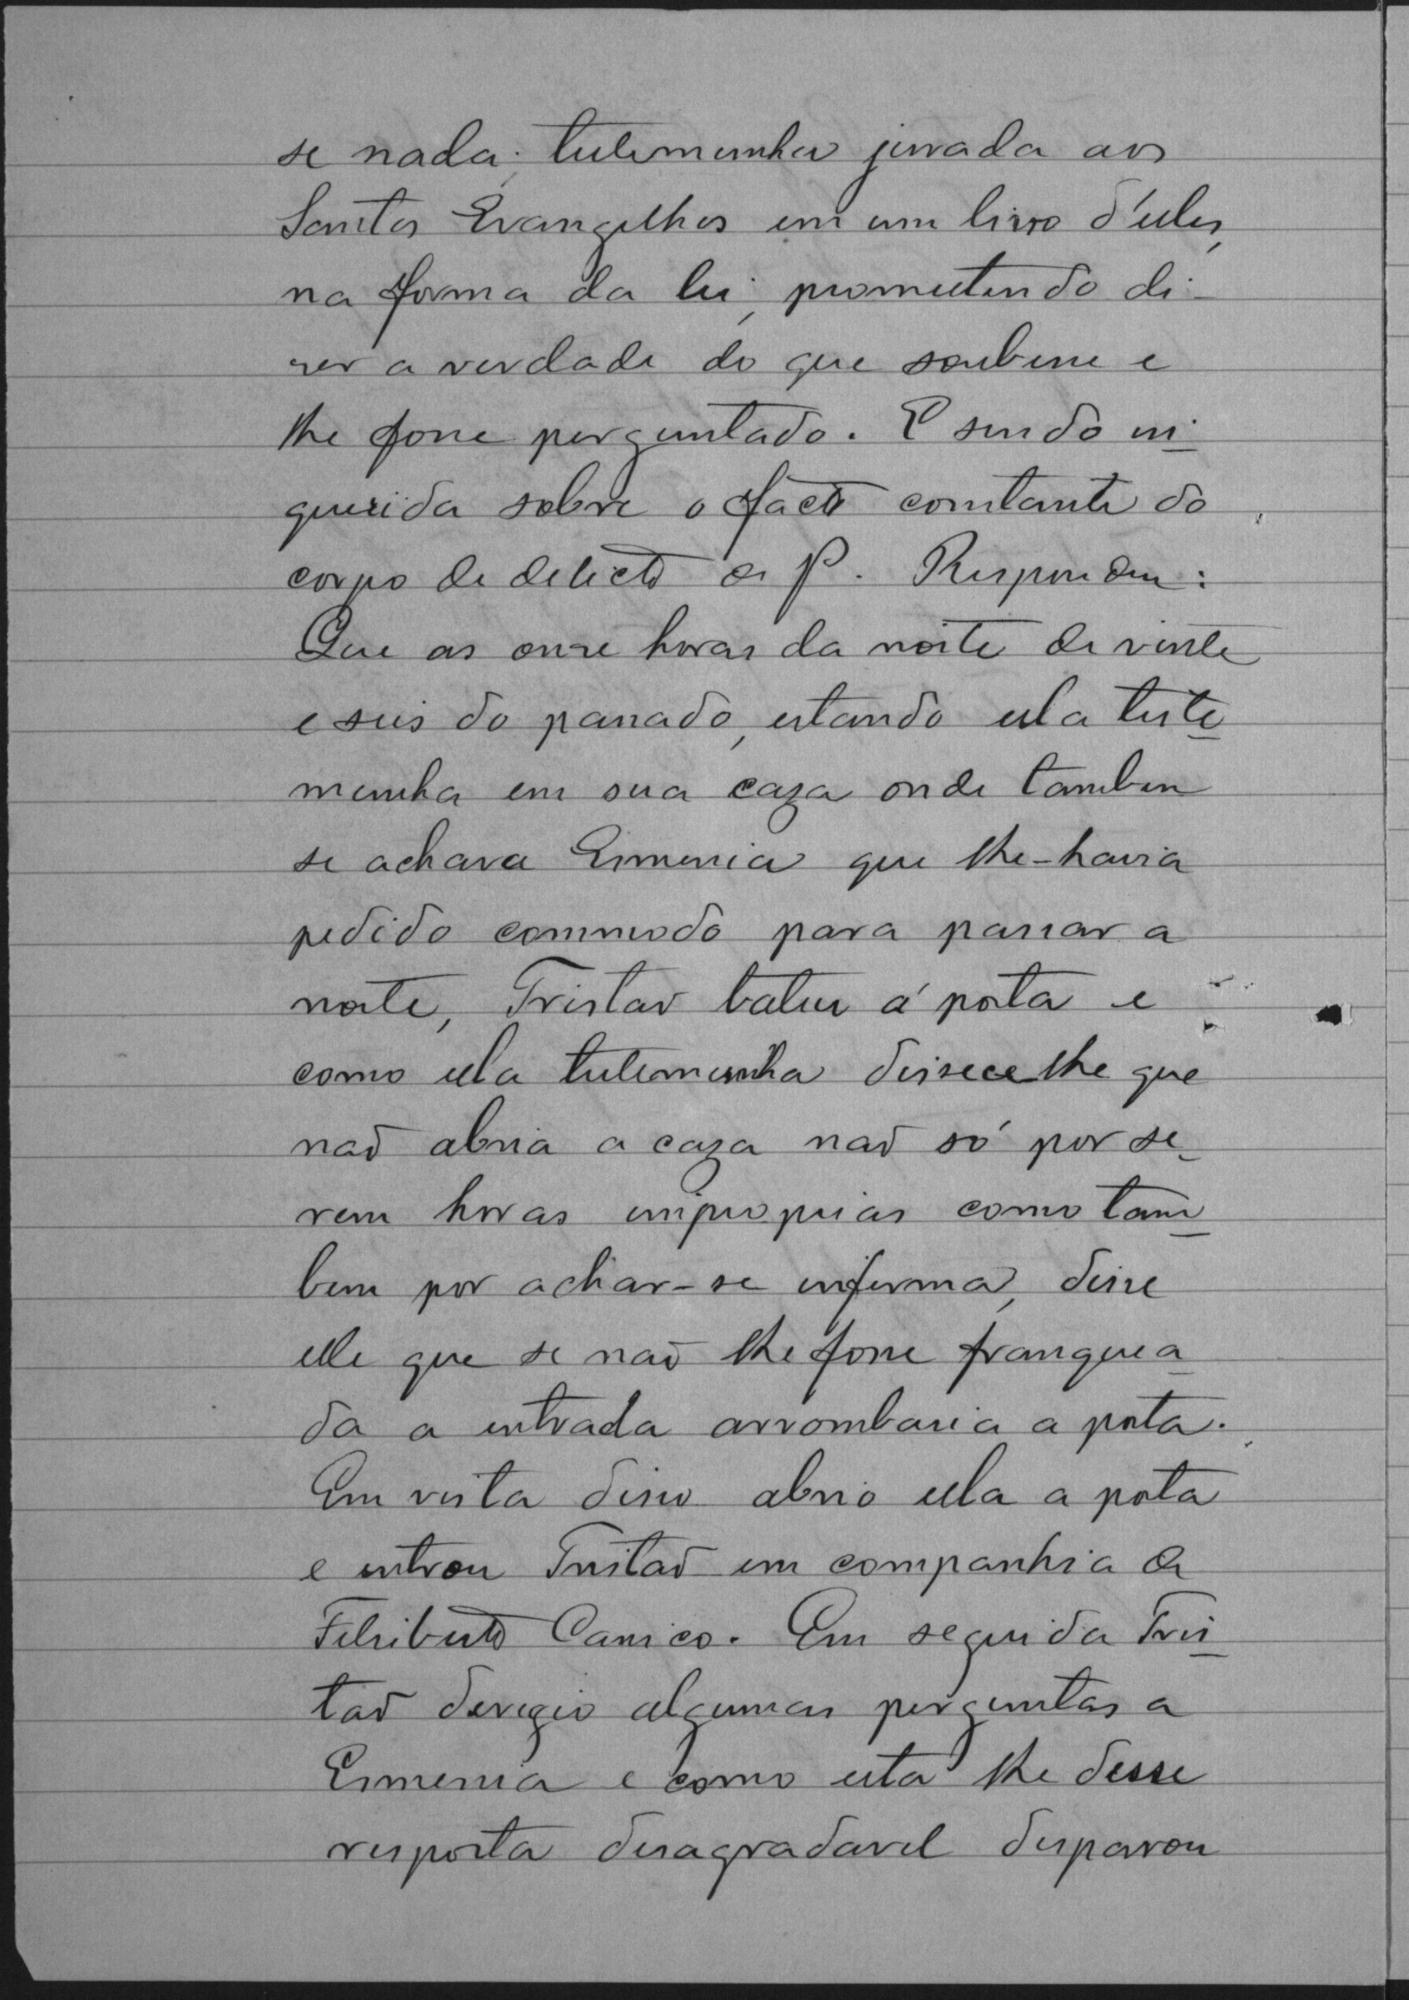 se nada; testemunha jurada aos
Santos Evangelhos em um livro d'elles,
na forma da lei, promettendo di-
zer a verdade do que soubesse e
lhe fosse perguntado. E sendo in-
querida sobre o facto constante do
corpo de delicto de f. Respondeu:
Que as onze horas da noite de vinte
e seis do passado, estando ella teste
munha em sua caza onde tambem
se achava Ermenia que lhe-havia
pedido commodo para passar a
noite, Tristaõ bateu á porta e
como ella testemunha dissece lhe que
naõ abria a caza naõ só por se-
rem horas improprias como tam
bem por achar-se enferma, disse
elle que se naõ lhe fosse franquea
da a entrada arrombaria a porta.
Em vista disso abrio ella a porta
e entrou Tristaõ em companhia de
Felisberto Canico. Em seguida Tris
taõ deregio algumas perguntas a
Ermenia e como esta lhe desse
resposta desagradavel disparou